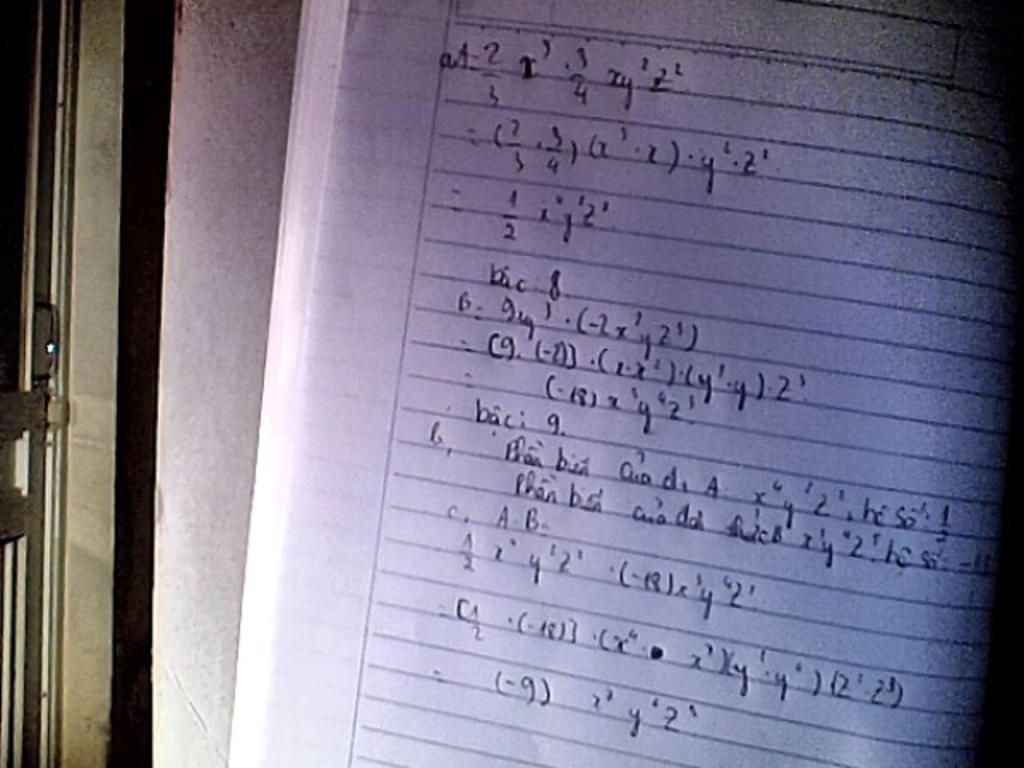 a, A = 2/3 x³ · 3/4 xy²z²
= (2/3 · 3/4) (x³ · x) · y² · z²
= 1/2 x⁴y²z²
bậc 8
B = 9xy³ · (-2x²yz³)
= [9 · (-2)] · (x · x²) · (y³ · y) · z³
= (-18) x³y⁴z³
bậc: 9
b, Phần biến của A x⁴y²z², hệ số: 1/2
Phần biến của đơn thức B x³y⁴z³ hệ số
c, A·B =
1/2 x⁴y²z² · (-18) x³y⁴z³
= [1/2 · (-18)] · (x⁴ · x³)(y² · y⁴) (z² · z³)
= (-9) x⁷ y⁶ z⁵